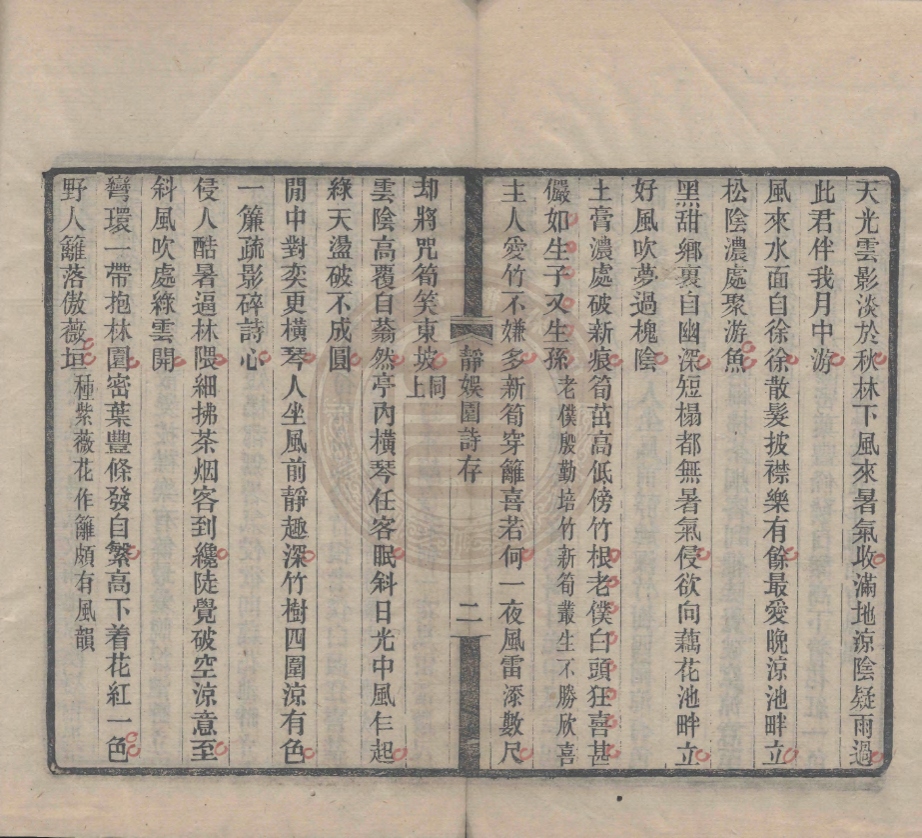 天光雲影淡於秋林下風來暑氣收滿地涼陰疑雨過
此君伴我月中游
風來水面自徐徐散髮披襟樂有餘最愛晚涼池畔立
松陰濃處聚游魚
黑甜鄉裏自幽深短榻都無暑氣侵欲向藕花池畔立
好風吹夢過槐陰
土膏濃處破新痕筍茁高低傍竹根老僕白頭狂喜甚
儼如生子又生孫老僕殷勤培竹新筍叢生不勝欣喜
主人愛竹不嫌多新筍穿籬喜若何一夜風雷添數尺
却將咒筍笑東坡同上
靜娛園詩存 二
雲陰高覆自蓊然亭內橫琴任客眠斜日光中風乍起
綠天盪破不成圓
閒中對奕更橫琴人坐風前靜趣深竹樹四圍涼有色
一簾疏影碎詩心
侵人酷暑逼林隈細拂茶烟客到纔陡覺破空涼意至
斜風吹處綠雲開
彎環一帶抱林園密葉豐條發自繁高下着花紅一色
野人籬落傲薇垣種紫薇花作籬頗有風韻